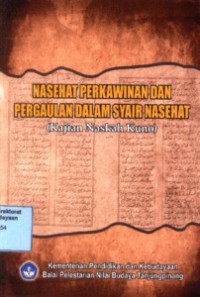 NASEHAT PERKAWINAN DAN
PERGAULAN DALAM SYAIR NASEHAT
(Kajian Naskah Kuno)
Direktorat
dayaan
04
Kementerian Pendidikan dan Kebudayaan
Balai Pelestarian Nilai Budaya Tanjungpinang